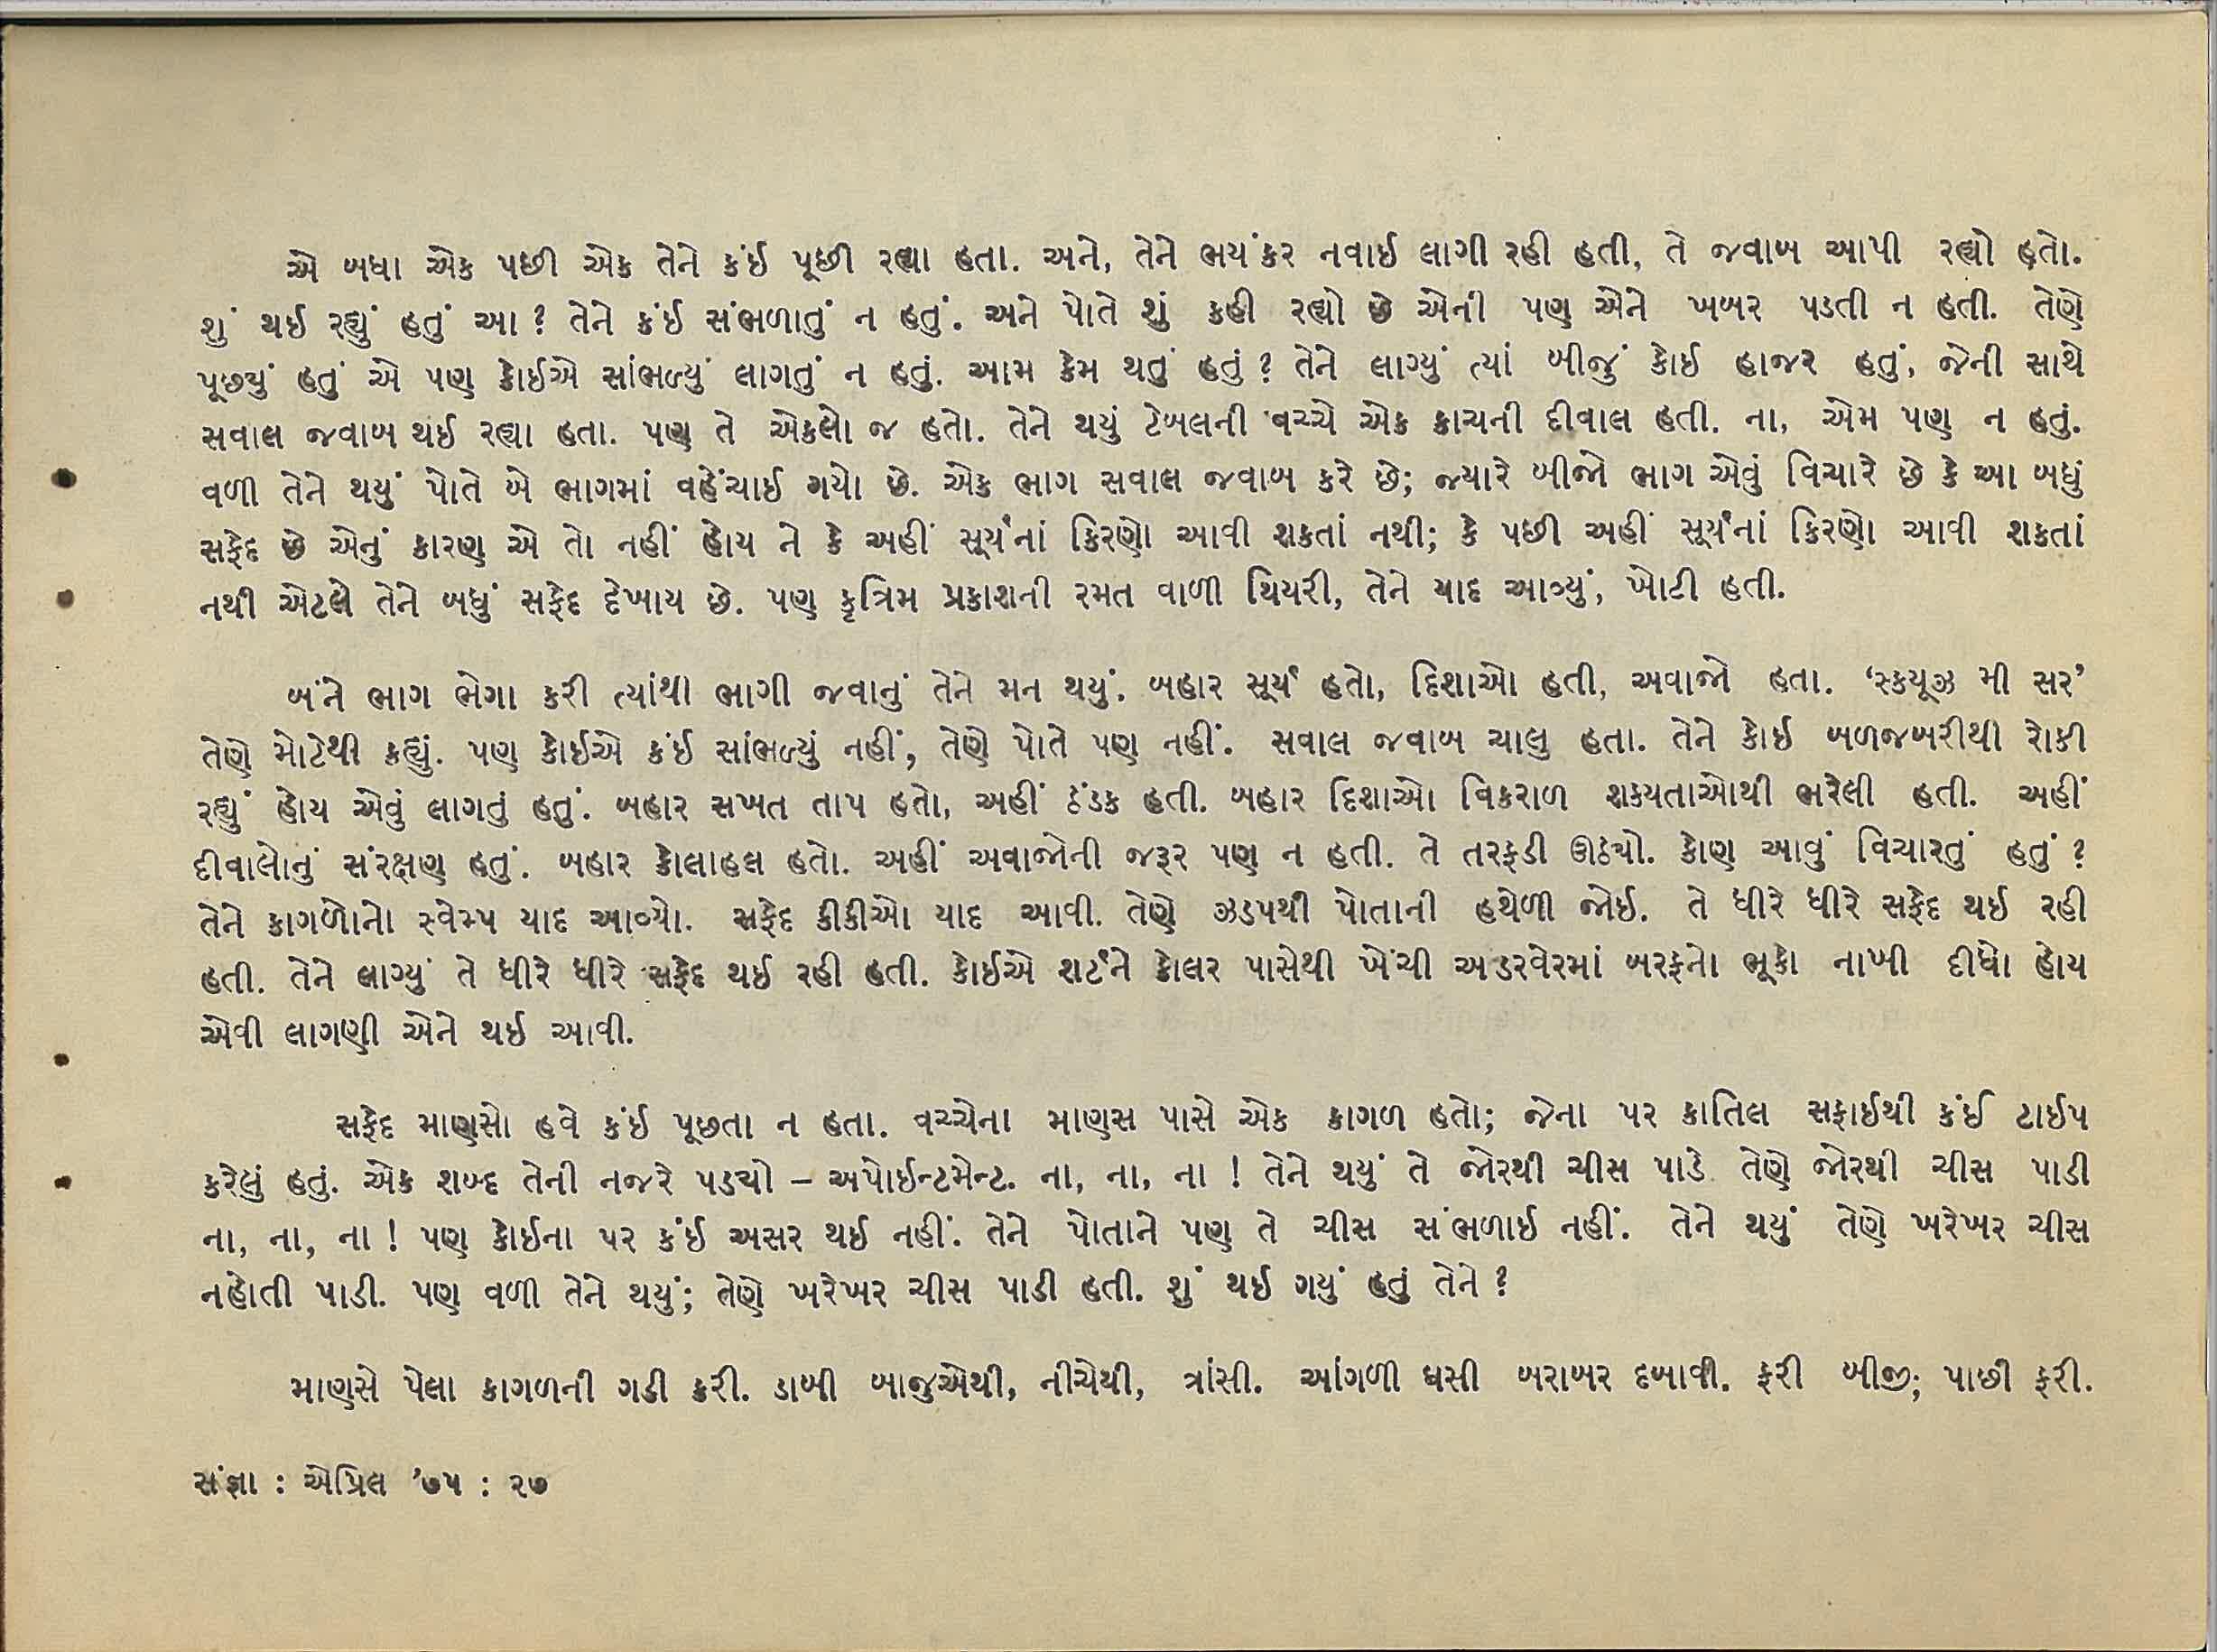 એ બધા એક પછી એક તેને કંઈ પૂછી રહ્યા હતા. અને, તેને ભયંકર નવાઈ લાગી રહી હતી, તે જવાબ આપી રહ્યો હતો.
શું થઈ રહ્યું હતું આ? તેને કંઈ સંભળાતું ન હતું. અને પોતે શું કહી રહ્યો છે એની પણ એને ખબર પડતી ન હતી. તેણે
પૂછ્યું હતું એ પણ કોઈએ સાંભળ્યું લાગતું ન હતું. આમ કેમ થતું હતું? તેને લાગ્યું ત્યાં બીજું કોઈ હાજર હતું, જેની સાથે
સવાલ જવાબ થઈ રહ્યા હતા. પણ તે એકલો જ હતો. તેને થયું ટેબલની વચ્ચે એક કાચની દીવાલ હતી. ના, એમ પણ ન હતું.
વળી તેને થયું પોતે બે ભાગમાં વહેંચાઈ ગયો છે. એક ભાગ સવાલ જવાબ કરે છે; જ્યારે બીજો ભાગ એવું વિચારે છે કે આ બધું
સફેદ છે એનું કારણ એ તો નહીં હોય ને કે અહીં સૂર્યનાં કિરણો આવી શકતાં નથી; કે પછી અહીં સૂર્યનાં કિરણો આવી શકતાં
નથી એટલે તેને બધું સફેદ દેખાય છે. પણ કૃત્રિમ પ્રકાશની રમત વાળી થિયરી, તેને યાદ આવ્યું, ખોટી હતી.
બંને ભાગ ભેગા કરી ત્યાંથી ભાગી જવાનું તેને મન થયું. બહાર સૂર્ય હતો, દિશાઓ હતી, અવાજો હતા. ‘સ્કયૂઝ મી સર’
તેણે મોટેથી કહ્યું. પણ કોઈએ કંઈ સાંભળ્યું નહીં, તેણે પોતે પણ નહીં. સવાલ જવાબ ચાલુ હતા. તેને કોઈ બળજબરીથી રોકી
રહ્યું હોય એવું લાગતું હતું. બહાર સખત તાપ હતો, અહીં ઠંડક હતી. બહાર દિશાઓ વિકરાળ શક્યતાઓથી ભરેલી હતી. અહીં
દીવાલોનું સંરક્ષણ હતું. બહાર કોલાહલ હતો. અહીં અવાજોની જરૂર પણ ન હતી. તે તરફડી ઊઠ્યો. કોણ આવું વિચારતું હતું?
તેને કાગળોનો સ્વેમ્પ યાદ આવ્યો. સફેદ કીકીઓ યાદ આવી. તેણે ઝડપથી પોતાની હથેળી જોઈ. તે ધીરે ધીરે સફેદ થઈ રહી
હતી. તેને લાગ્યું તે ધીરે ધીરે સફેદ થઈ રહી હતી. કોઈએ શર્ટને કોલર પાસેથી ખેંચી અડરવેરમાં બરફનો ભૂકો નાખી દીધો હોય
એવી લાગણી એને થઈ આવી.
સફેદ માણસો હવે કંઈ પૂછતા ન હતા. વચ્ચેના માણસ પાસે એક કાગળ હતો; જેના પર કાતિલ સફાઈથી કંઈ ટાઈપ
કરેલું હતું. એક શબ્દ તેની નજરે પડ્યો – અપોઈન્ટમેન્ટ. ના, ના, ના ! તેને થયું તે જોરથી ચીસ પાડે. તેણે જોરથી ચીસ પાડી
ના, ના, ના ! પણ કોઈના પર કંઈ અસર થઈ નહીં. તેને પોતાને પણ તે ચીસ સંભળાઈ નહીં. તેને થયું તેણે ખરેખર ચીસ
નહોતી પાડી. પણ વળી તેને થયું; તેણે ખરેખર ચીસ પાડી હતી. શું થઈ ગયું હતું તેને ?
માણસે પેલા કાગળની ગડી કરી. ડાબી બાજુએથી, નીચેથી, ત્રાંસી. આંગળી ઘસી બરાબર દબાવી. ફરી બીજી; પાછી ફરી.
સંજ્ઞા : એપ્રિલ ’૭૫ : ૨૭